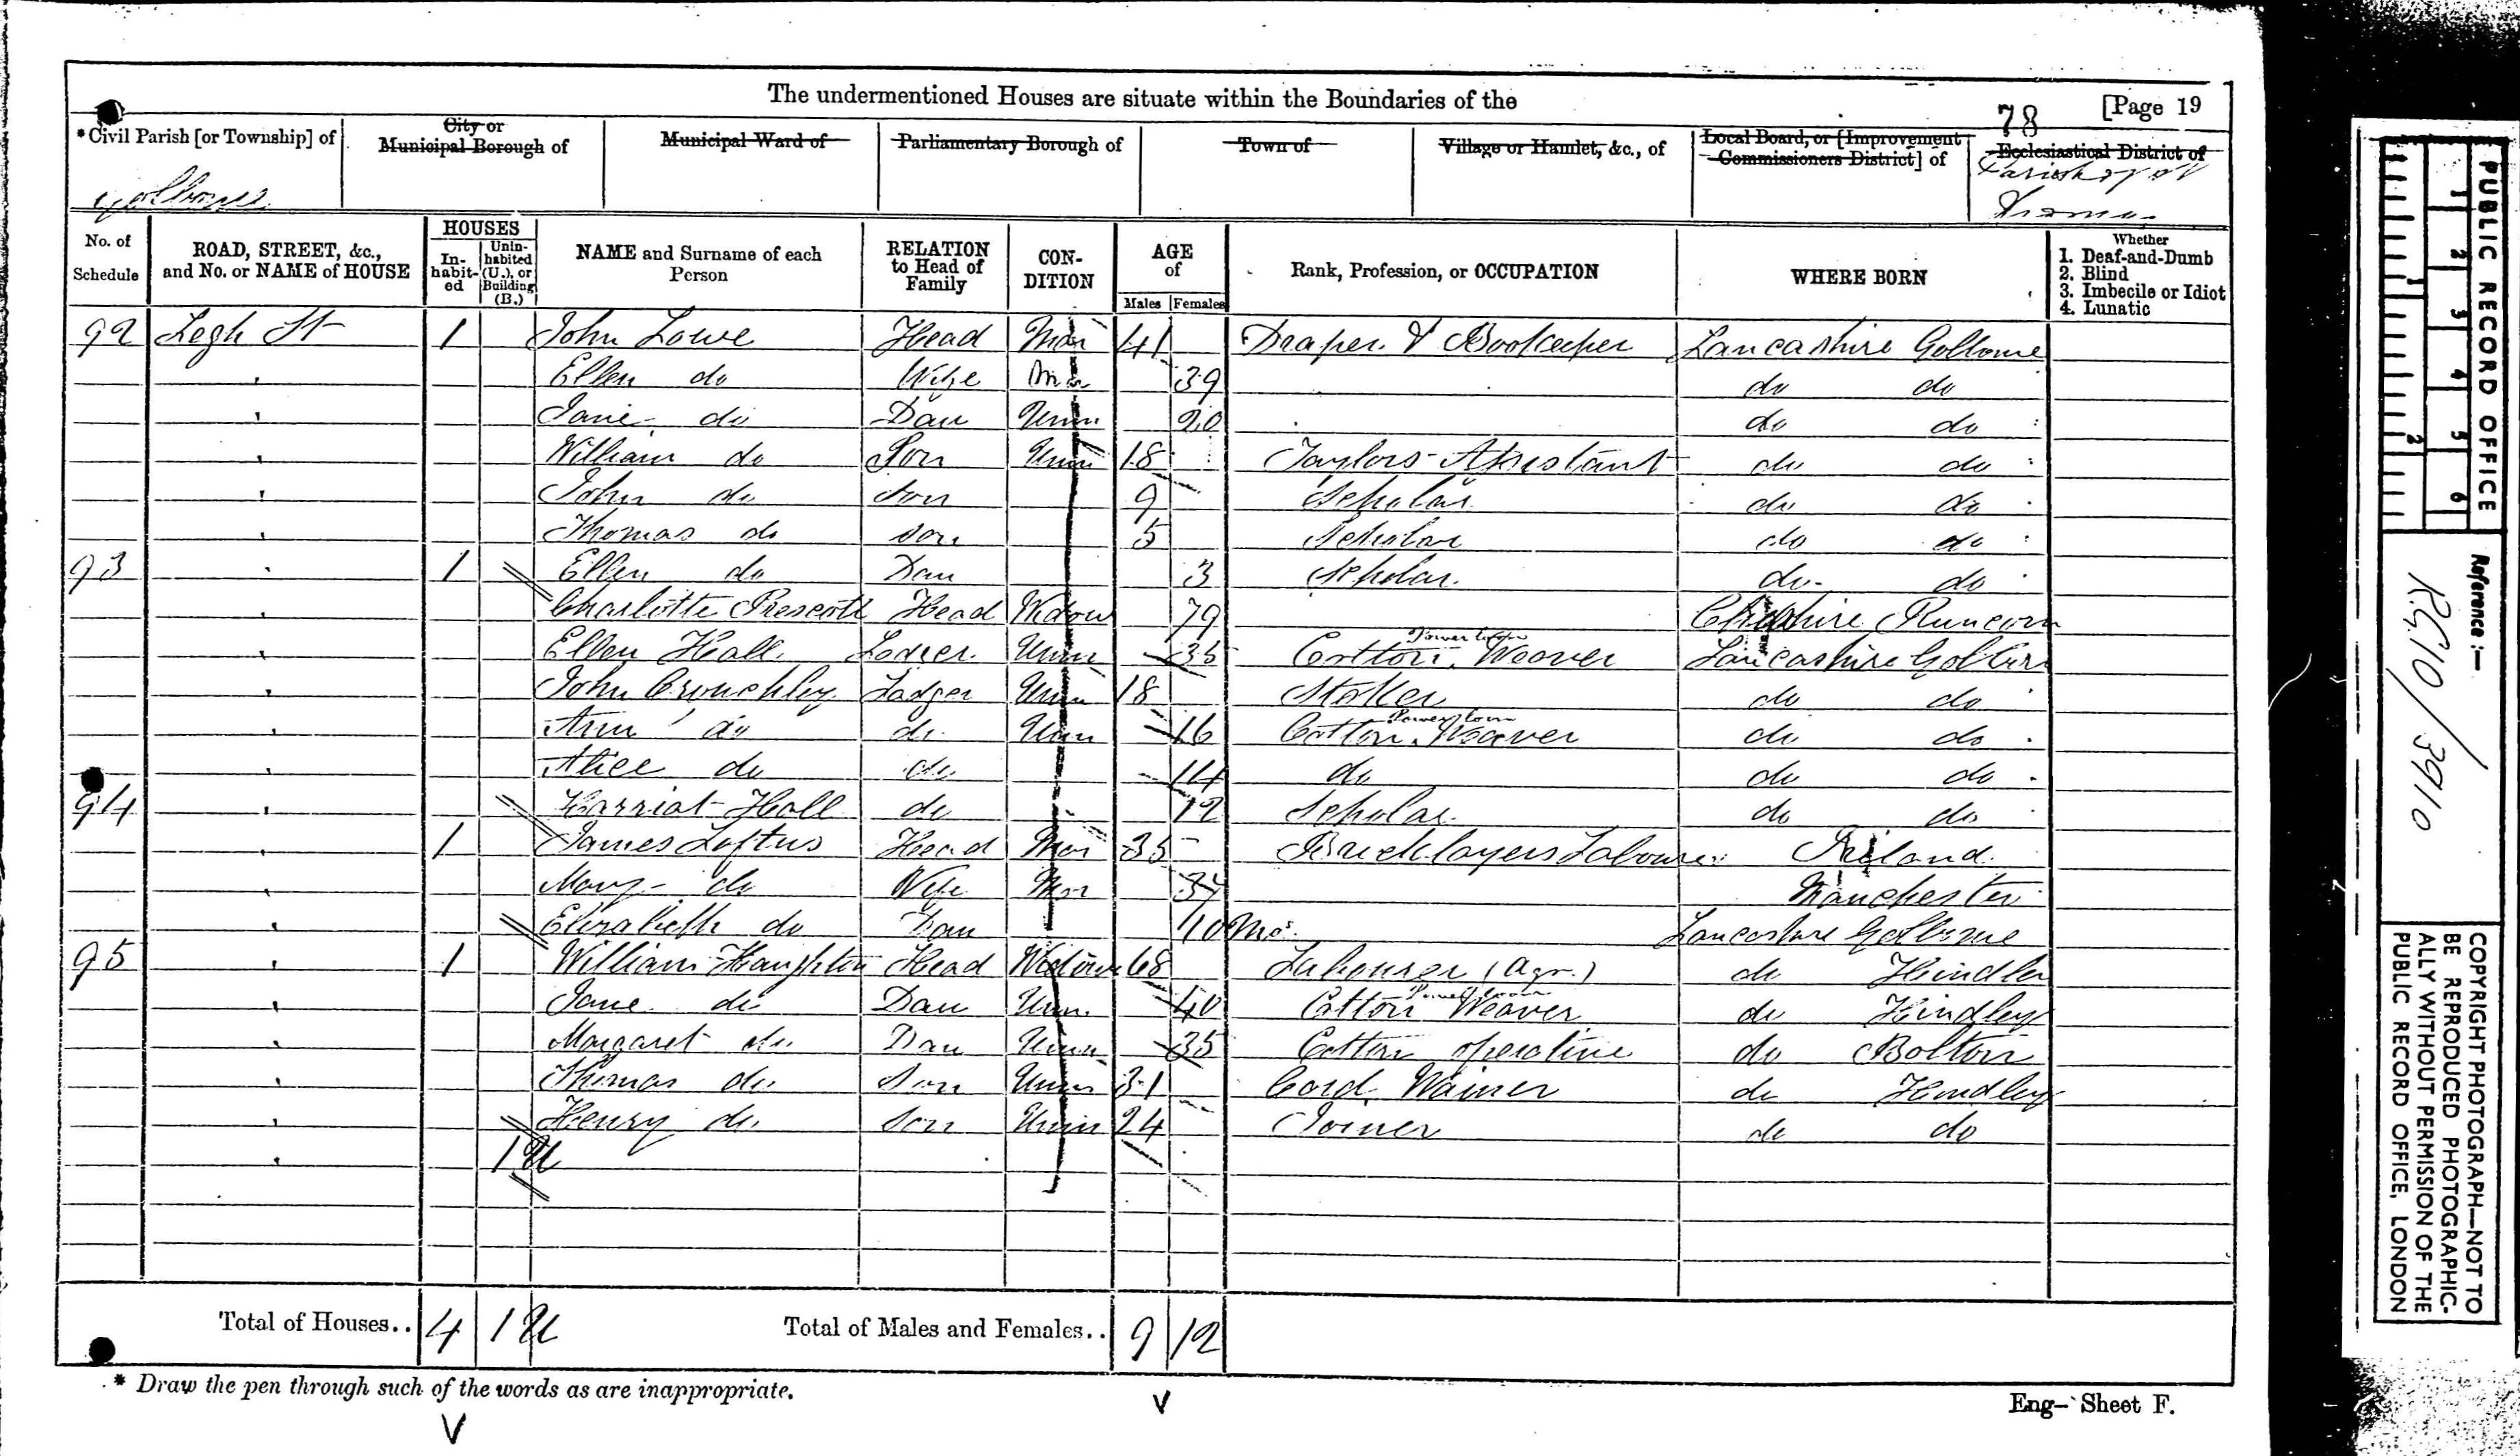 The undermentioned Houses are situate within the Boundaries of the
78 [Page 19
*Civil Parish [or Township] of City or Municipal Borough of Municipal Ward of Parliamentary Borough of Town of Village or Hamlet, &c., of Local Board, or [Improvement Commissioners District] of Ecclesiastical District of
Golborne Parish of
No. of Schedule ROAD, STREET, &c., and No. or NAME of HOUSE HOUSES In-habit-ed Unin-habited (U.), or Building (B.) NAME and Surname of each Person RELATION to Head of Family CON-DITION AGE of Males Females Rank, Profession, or OCCUPATION WHERE BORN Whether 1. Deaf-and-Dumb 2. Blind 3. Imbecile or Idiot 4. Lunatic
92 Legh St 1 John Lowe Head Mar 41 Draper & Bookeeper Lancashire Golborne
Ellen do Wife Mar 39 do do
Jane do Dau Unm 20 do do
William do Son Unm 18 Taylors Assistant do do
John do Son 9 Scholar do do
Thomas do Son 5 Scholar do do
93 1 Ellen do Dau 3 Scholar do do
Charlotte Prescott Head Widow 79 Cheshire Runcorn
Ellen Hall Lodger Unm 35 Cotton Power Loom Weaver Lancashire Golborne
John Crouchley Lodger Unm 18 Stoker do do
Ann do do Unm 16 Cotton Power Loom Weaver do do
Alice do do 14 do do do
94 Harriat Hall do 12 Scholar do do
1 James Loftus Head Mar 35 Bricklayers Labourer Ireland
Mary do Wife Mar 37 Manchester
Elizabeth do Dau 10 Mos Lancashire Golborne
95 1 William Haughton Head Widower 68 Labourer (Agr.) do Hindley
Jane do Dau Unm 40 Cotton Power Loom Weaver do Hindley
Margaret do Dau Unm 35 Cotton operative do Bolton
Thomas do Son Unm 31 Cord Wainer do Hindley
Henry do Son Unm 24 Joiner do do
1 U
Total of Houses.. 4 1 U Total of Males and Females.. 9 12
* Draw the pen through such of the words as are inappropriate.
Eng- Sheet F.
PUBLIC RECORD OFFICE
1 2 3 4 5 6
1 2
Reference :-
RG10/3910
COPYRIGHT PHOTOGRAPH—NOT TO
BE REPRODUCED PHOTOGRAPHIC-
ALLY WITHOUT PERMISSION OF THE
PUBLIC RECORD OFFICE, LONDON